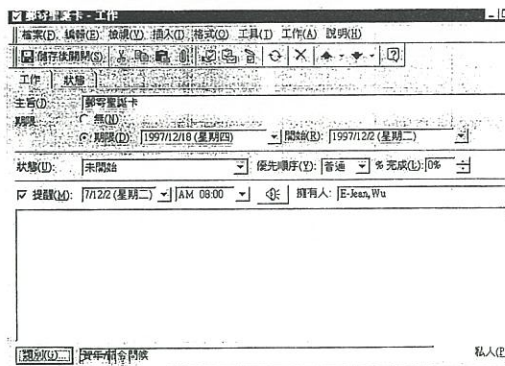 郵寄聖誕卡 - 工作
檔案(F) 編輯(E) 檢視(V) 插入(I) 格式(O) 工具(T) 工作(A) 說明(H)
儲存後關閉(S)
工作 狀態
主旨(J) 郵寄聖誕卡
期限 無(N)
期限(D) 1997/12/18 (星期四) 開始(R): 1997/12/2 (星期二)
狀態(U): 未開始 優先順序(Y): 普通 % 完成(L): 0%
提醒(M): 7/12/2 (星期二) AM 08:00 擁有人: E-Jean, Wu
類別(G)... 賀年/節令問候 私人(P